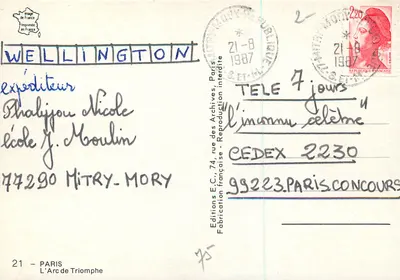 Image de France
WELLINGTON
expéditeur
Phalijou Nicole
école J. Moulin
77290 MITRY-MORY
21 - PARIS
L'Arc de Triomphe
Editions E.C., 74, rue des Archives, Paris.
Fabrication française - Reproduction interdite
21-8
1987
21-8
1987
2,20
TELE 7 jours
"l'inconnu célèbre"
CEDEX 2230
99223.PARIS.CONCOURS
75